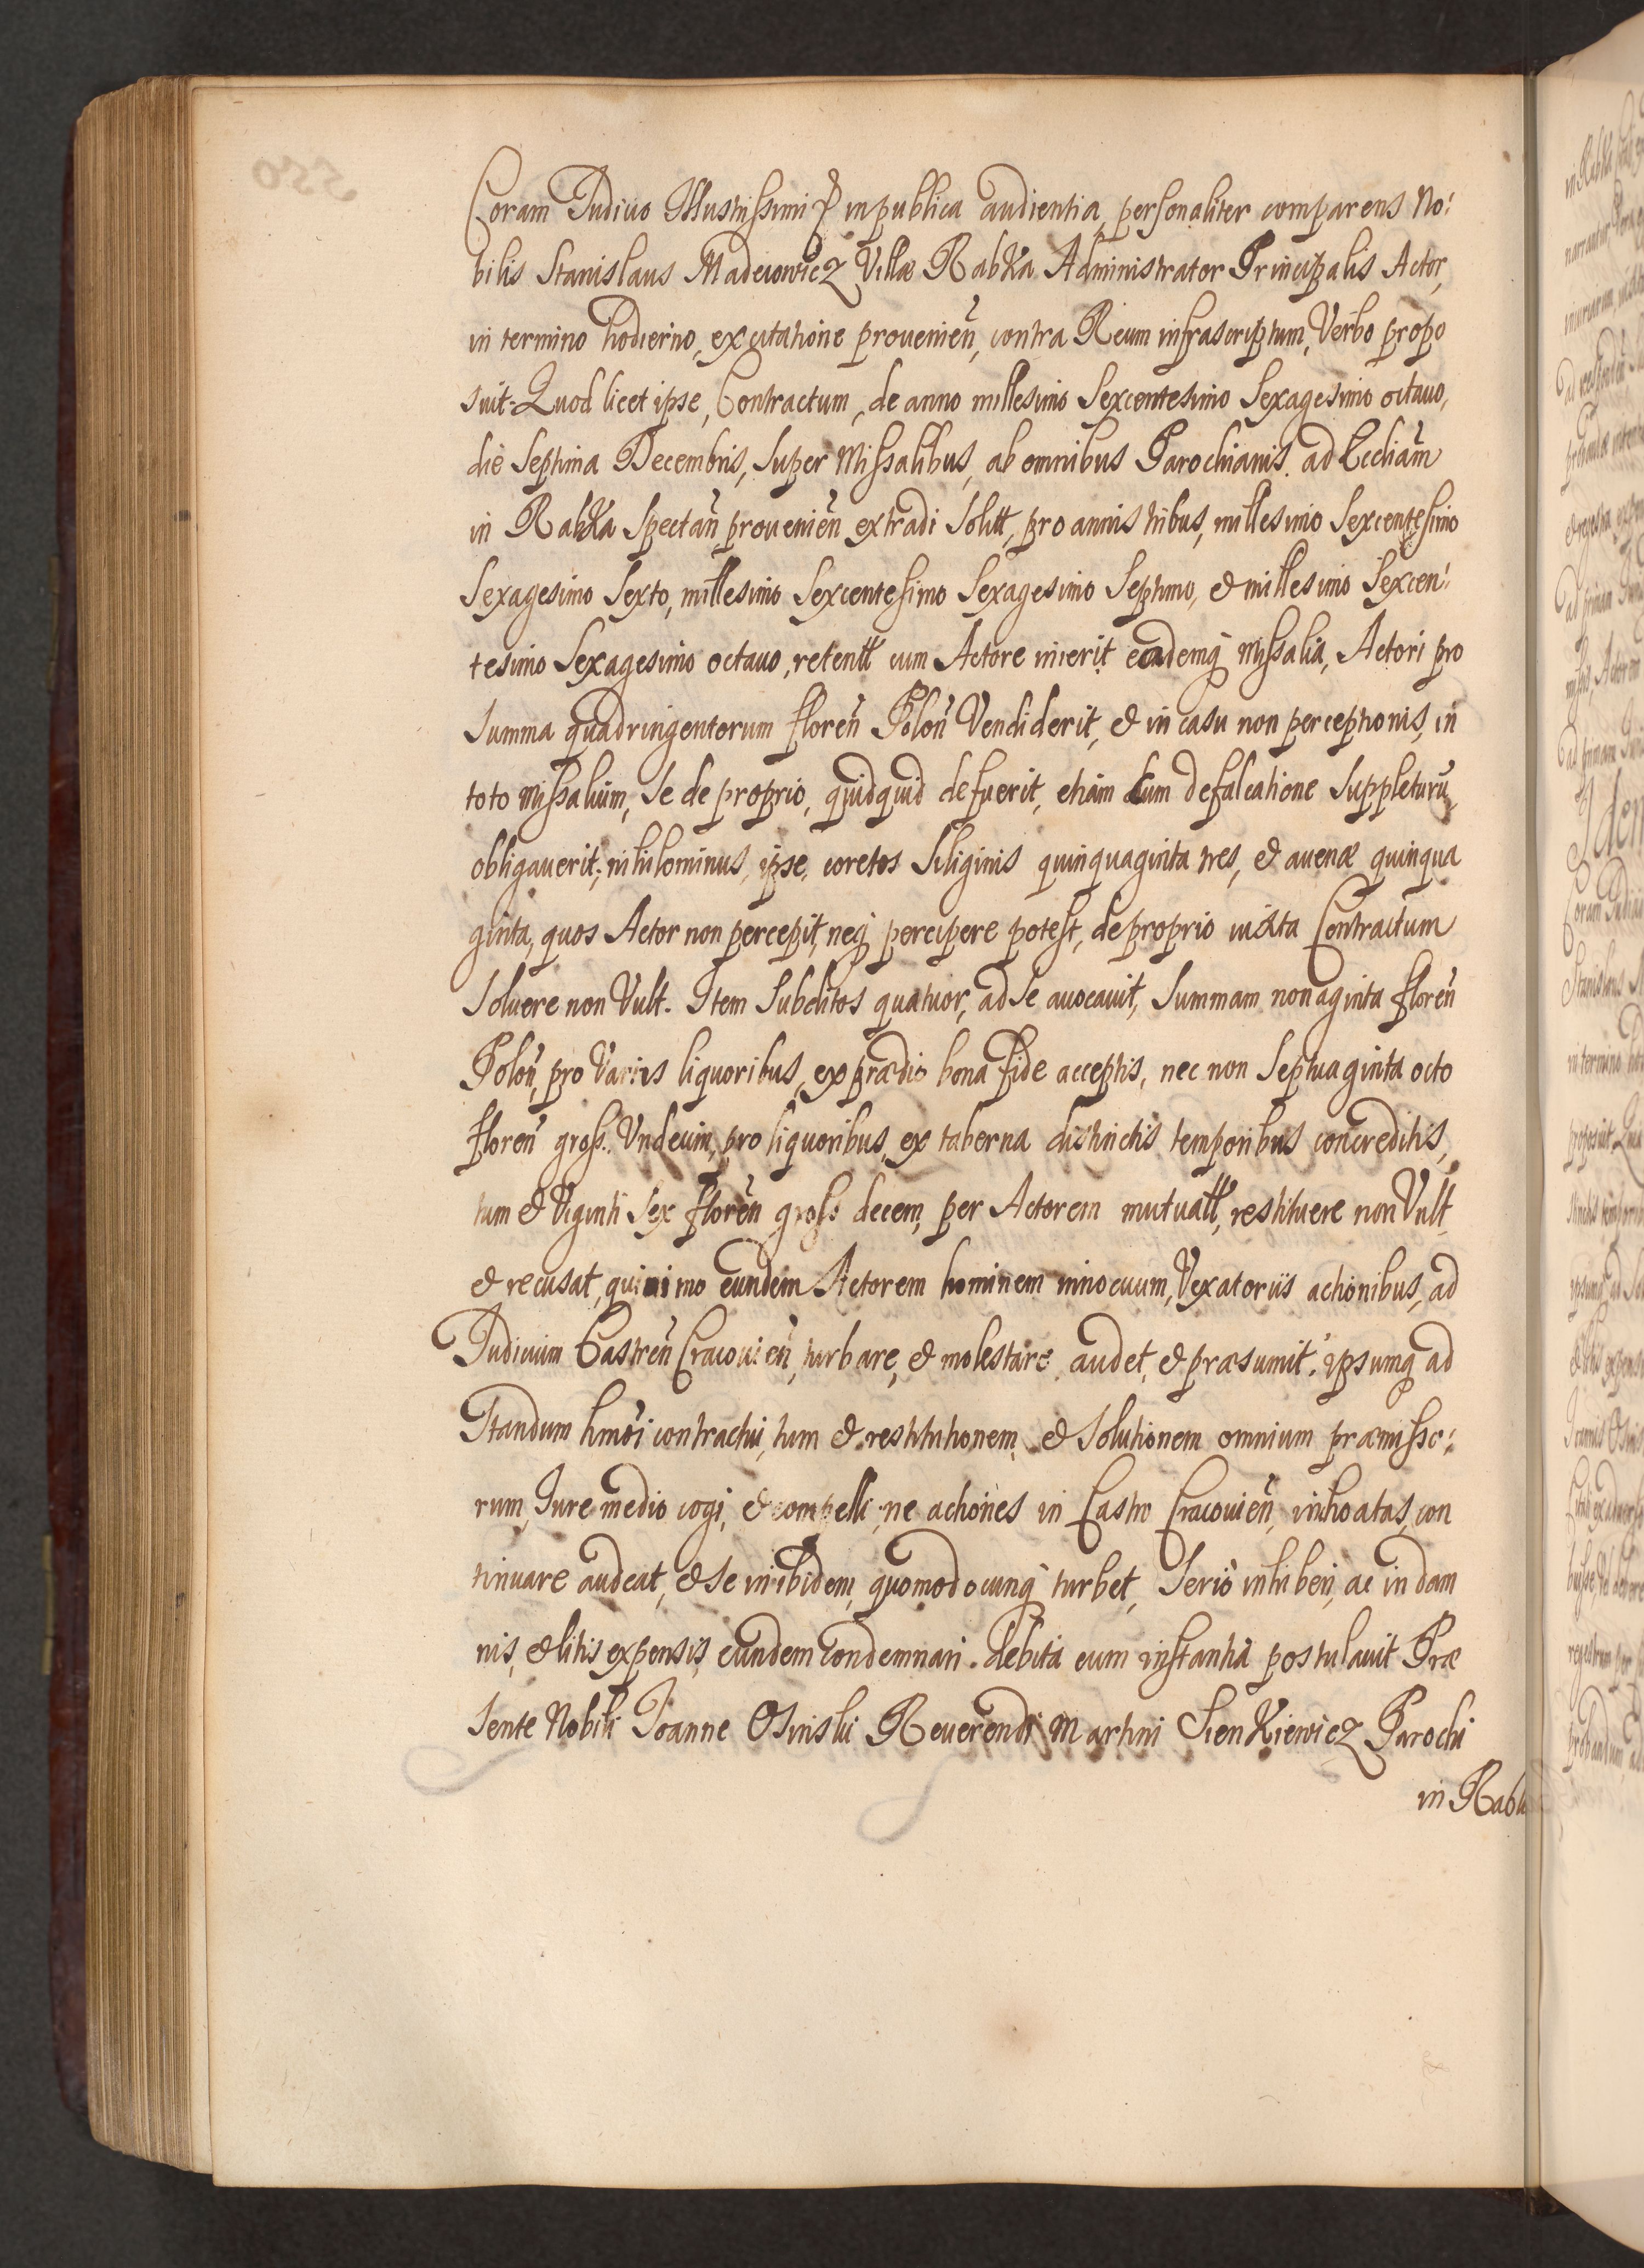 Coram Judicio Illustrissimi &c in publica audientia, personaliter comparens No:
bilis Stanislaus Madeiowicz Villæ Rabka Administrator Principalis Actor,
in termino hodierno, ex citatione prouenien̄, contra Reum infrascriptum, Verbo propo
suit. Quod licet ipse, Contractum, de anno millesimo Sexcentesimo Sexagesimo octauo,
die Septima Decembris, Super Missalibus, ab omnibus Parochianis ad Eccliam̄
in Rabka Spectan̄ prouenien̄ extradi Solitt, pro annis tribus, millesimo Sexcentesimo
Sexagesimo Sexto, millesimo Sexcentesimo Sexagesimo Septimo, & millesimo Sexcen:
tesimo Sexagesimo octauo, retentt cum Actore inierit eademq Missalia, Actori pro
Summa quadringentorum floren̄ Polon̄ Vendiderit, & in casu non perceptionis, in
toto Missalium, Se de proprio, quidquid defuerit, etiam cum defalcatione Suppleturū,
obligauerit; nihilominus, ipse, coretos Siliginis quinquaginta tres, & auenæ quinqua
ginta, quos Actor non percepit, neq percipere potest, de proprio iuxta Contractum
Soluere non Vult. Item Subditos quatuor, ad Se auocauit, Summam nonaginta floren̄
Polon̄, pro Varijs liquoribus, ex prædio bona fide acceptis, nec non Septuaginta octo
floren̄ gross. Vndecim, pro liquoribus, ex taberna distinctis temporibus concreditis,
tum & Viginti Sex floren̄ gross decem, per Actorem mutuatt, restituere non Vult
& recusat, quinimo eundem Actorem hominem innocuum, Vexatorijs actionibus, ad
Judicium Castren̄ Cracouien̄, turbare, & molestare audet, & præsumit. ipsumq ad
Standum hmōi contractui, tum & restitutionem & Solutionem omnium præmisso:
rum, Jure medio cogi, & compelli, ne actiones in Castro Cracouien̄, inchoatas, con
tinuare audeat, & Se inibidem, quomodocunq turbet, Serio inhiberi, ac in dam
nis, & litis expensis, eundem condemnari. debita cum instantia postulauit Præ
Sente Nobili Joanne Osinski Reuerendi Martini Sienkiewicz Parochi
in Rabk